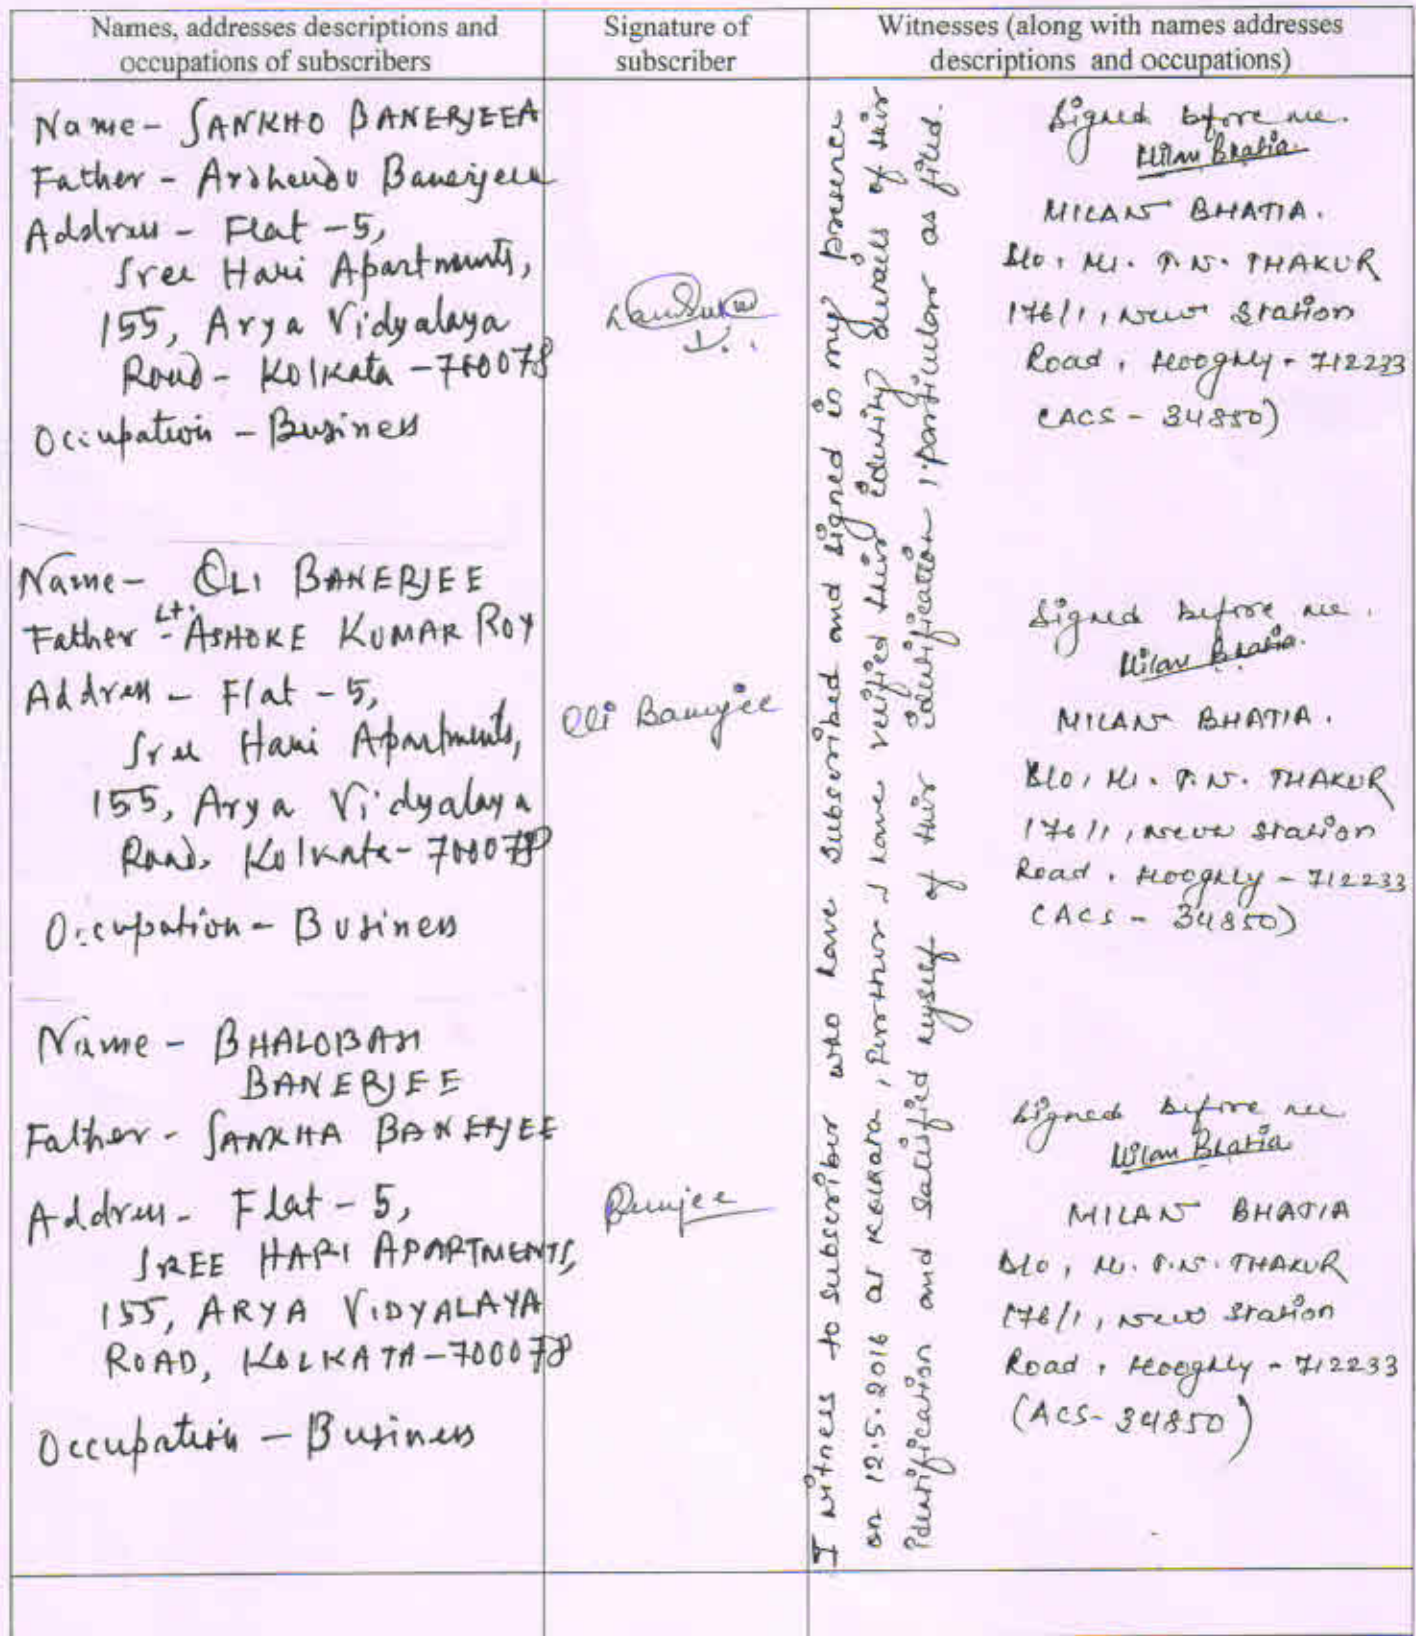 Names, addresses descriptions and
occupations of subscribers
Signature of
subscriber
Witnesses (along with names addresses
descriptions and occupations)
Name - SANKHO BANERJEEA
Father - Ardhendu Banerjee
Address - Flat - 5,
Sree Hari Apartments,
155, Arya Vidyalaya
Road - Kolkata - 700078
Occupation - Business
Signed before me.
Milan Bhatia
MILAN BHATIA.
S/o, Mr. T.N. THAKUR
176/1, New Station
Road, Hooghly - 712233
(ACS - 34850)
Name - OLI BANERJEE
Father - Lt. ASHOKE KUMAR ROY
Address - Flat - 5,
Sree Hari Apartments,
155, Arya Vidyalaya
Road, Kolkata - 700078
Occupation - Business
Oli Banerjee
Signed before me.
Milan Bhatia
MILAN BHATIA.
S/o, Mr. T.N. THAKUR
176/1, New Station
Road, Hooghly - 712233
(ACS - 34850)
Name - BHALOBASI
BANERJEE
Father - SANKHA BANERJEE
Address - Flat - 5,
SREE HARI APARTMENTS,
155, ARYA VIDYALAYA
ROAD, KOLKATA - 700078
Occupation - Business
Banerjee
Signed before me
Milan Bhatia
MILAN BHATIA
S/o, Mr. T.N. THAKUR
176/1, New Station
Road, Hooghly - 712233
(ACS - 34850)
I witness to subscriber who have subscribed and signed in my presence
on 12.5.2016 at Kolkata, further I have verified their identity details of their
identification and satisfied myself of their identification particulars as filed.